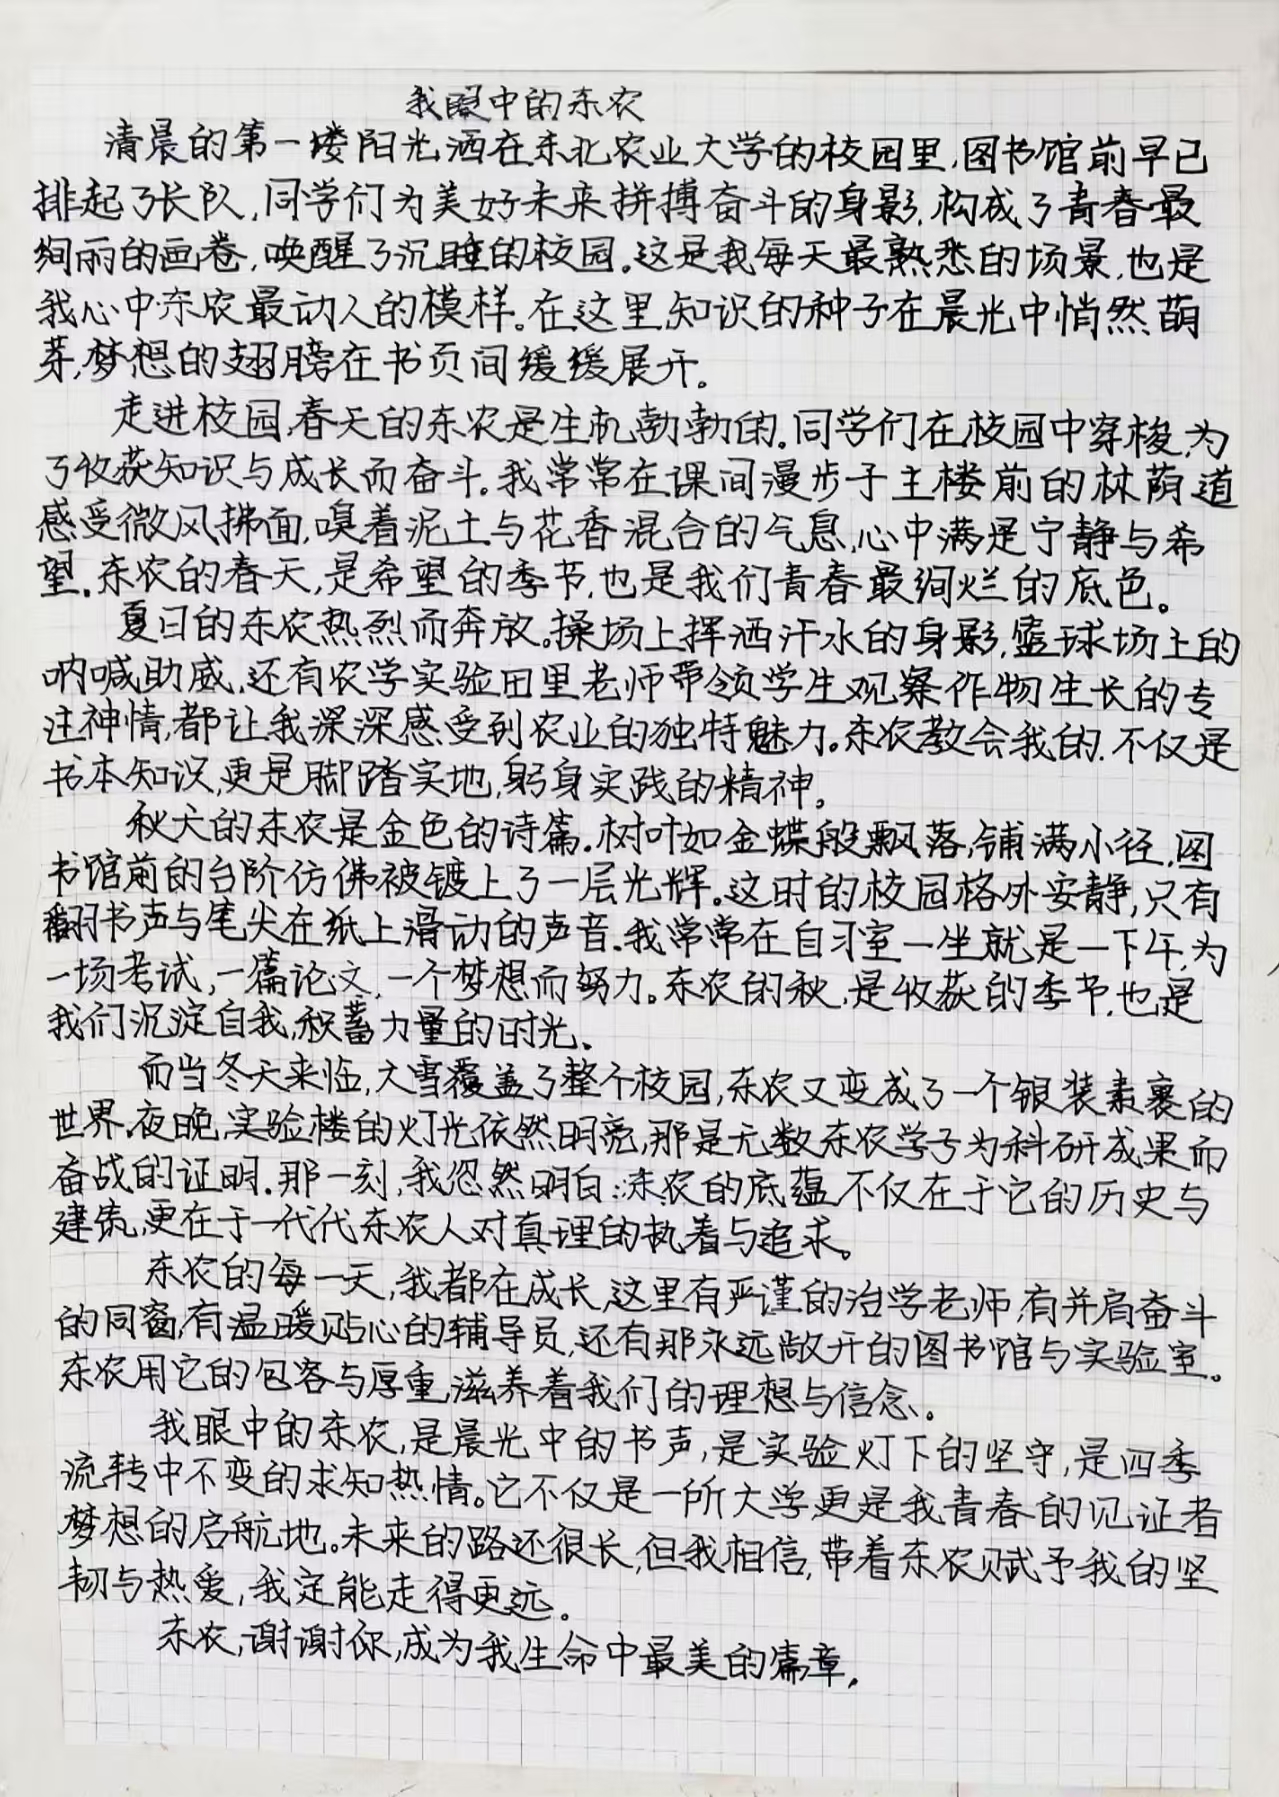 我眼中的东农
清晨的第一缕阳光洒在东北农业大学的校园里,图书馆前早已
排起了长队,同学们为美好未来拼搏奋斗的身影,构成了青春最
绚丽的画卷,唤醒了沉睡的校园。这是我每天最熟悉的场景,也是
我心中东农最动人的模样。在这里,知识的种子在晨光中悄然萌
芽,梦想的翅膀在书页间缓缓展开。
走进校园,春天的东农是生机勃勃的。同学们在校园中穿梭,为
了收获知识与成长而奋斗。我常常在课间漫步于主楼前的林荫道
感受微风拂面,嗅着泥土与花香混合的气息,心中满是宁静与希
望。东农的春天,是希望的季节,也是我们青春最绚烂的底色。
夏日的东农热烈而奔放。操场上挥洒汗水的身影,篮球场上的
呐喊助威,还有农学实验田里老师带领学生观察作物生长的专
注神情,都让我深深感受到农业的独特魅力。东农教会我的,不仅是
书本知识,更是脚踏实地,躬身实践的精神。
秋天的东农是金色的诗篇。树叶如金蝶般飘落,铺满小径,图
书馆前的台阶仿佛被镀上了一层光辉。这时的校园格外安静,只有
翻书声与笔尖在纸上滑动的声音。我常常在自习室一坐就是一下午,为
一场考试,一篇论文,一个梦想而努力。东农的秋,是收获的季节,也是
我们沉淀自我,积蓄力量的时光。
而当冬天来临,大雪覆盖了整个校园,东农又变成了一个银装素裹的
世界。夜晚,实验楼的灯光依然明亮,那是无数东农学子为科研成果而
奋战的证明。那一刻,我忽然明白:东农的底蕴,不仅在于它的历史与
建筑,更在于一代代东农人对真理的执着与追求。
东农的每一天,我都在成长,这里有严谨的治学老师,有并肩奋斗
的同窗,有温暖贴心的辅导员,还有那永远敞开的图书馆与实验室。
东农用它的包容与厚重,滋养着我们的理想与信念。
我眼中的东农,是晨光中的书声,是实验灯下的坚守,是四季
流转中不变的求知热情。它不仅是一所大学,更是我青春的见证者
梦想的启航地。未来的路还很长,但我相信,带着东农赋予我的坚
韧与热爱,我定能走得更远。
东农,谢谢你,成为我生命中最美的篇章。